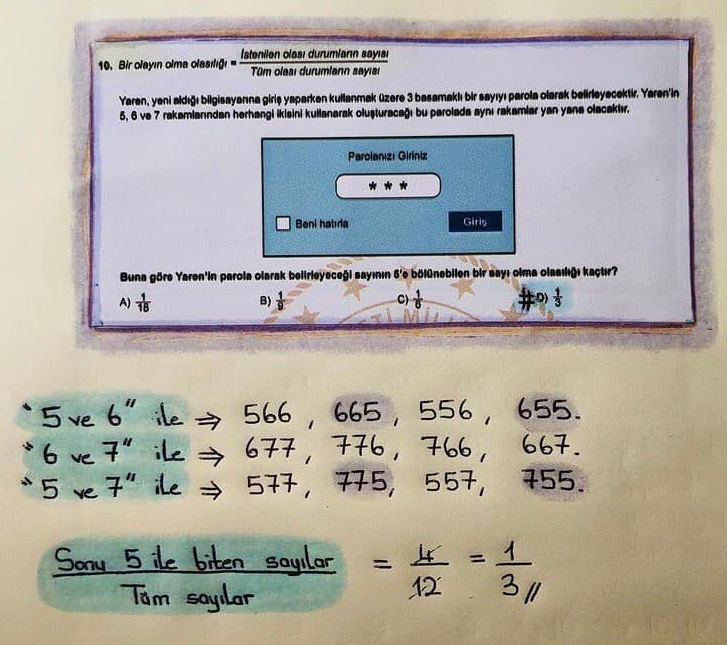 10. Bir olayın olma olasılığı = İstenilen olası durumların sayısı
Tüm olası durumların sayısı
Yaren, yeni aldığı bilgisayarına giriş yaparken kullanmak üzere 3 basamaklı bir sayıyı parola olarak belirleyecektir. Yaren'in
5, 6 ve 7 rakamlarından herhangi ikisini kullanarak oluşturacağı bu parolada aynı rakamlar yan yana olacaktır.
Parolanızı Giriniz
* * *
Beni hatırla
Giriş
Buna göre Yaren'in parola olarak belirleyeceği sayının 5'e bölünebilen bir sayı olma olasılığı kaçtır?
A) 1/18 B) 1/9 C) 1/6 D) 1/3
"5 ve 6" ile ⇒ 566, 665, 556, 655.
"6 ve 7" ile ⇒ 677, 776, 766, 667.
"5 ve 7" ile ⇒ 577, 775, 557, 755.
Sonu 5 ile biten sayılar = 4/12 = 1/3 //
Tüm sayılar